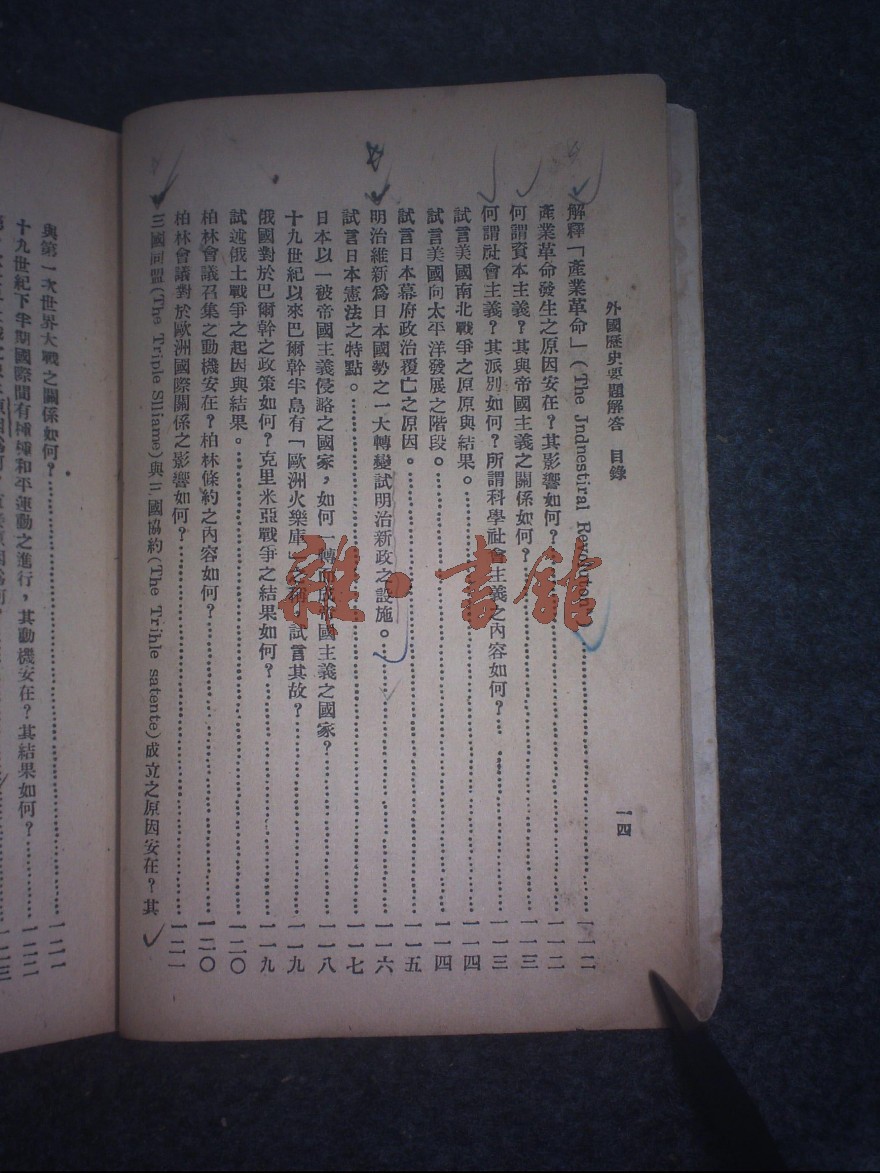 外國歷史要題解答　目錄
一四
解釋「產業革命」(The Jndnestiral Revolution)……一一二
產業革命發生之原因安在？其影響如何？……一一二
何謂資本主義？其與帝國主義之關係如何？……一一三
何謂社會主義？其派別如何？所謂科學社會主義之內容如何？……一一三
試言美國南北戰爭之原原與結果。……一一四
試言美國向太平洋發展之階段。……一一四
試言日本幕府政治覆亡之原因。……一一五
明治維新爲日本國勢之一大轉變試明治新政之設施。……一一六
試言日本憲法之特點。……一一七
日本以一被帝國主義侵略之國家，如何一轉而成帝國主義之國家？……一一八
十九世紀以來巴爾幹半島有「歐洲火樂庫」之稱，試言其故？……一一九
俄國對於巴爾幹之政策如何？克里米亞戰爭之結果如何？……一一九
試述俄土戰爭之起因與結果。……一二〇
柏林會議召集之動機安在？柏林條約之內容如何？……一二〇
柏林會議對於歐洲國際關係之影響如何？……一二一
三國同盟(The Triple Slliame)與三國協約(The Trihle satente)成立之原因安在？其
與第一次世界大戰之關係如何？……一二一
十九世紀下半期國際間有種種和平運動之進行，其動機安在？其結果如何？……一二二
雜·書館